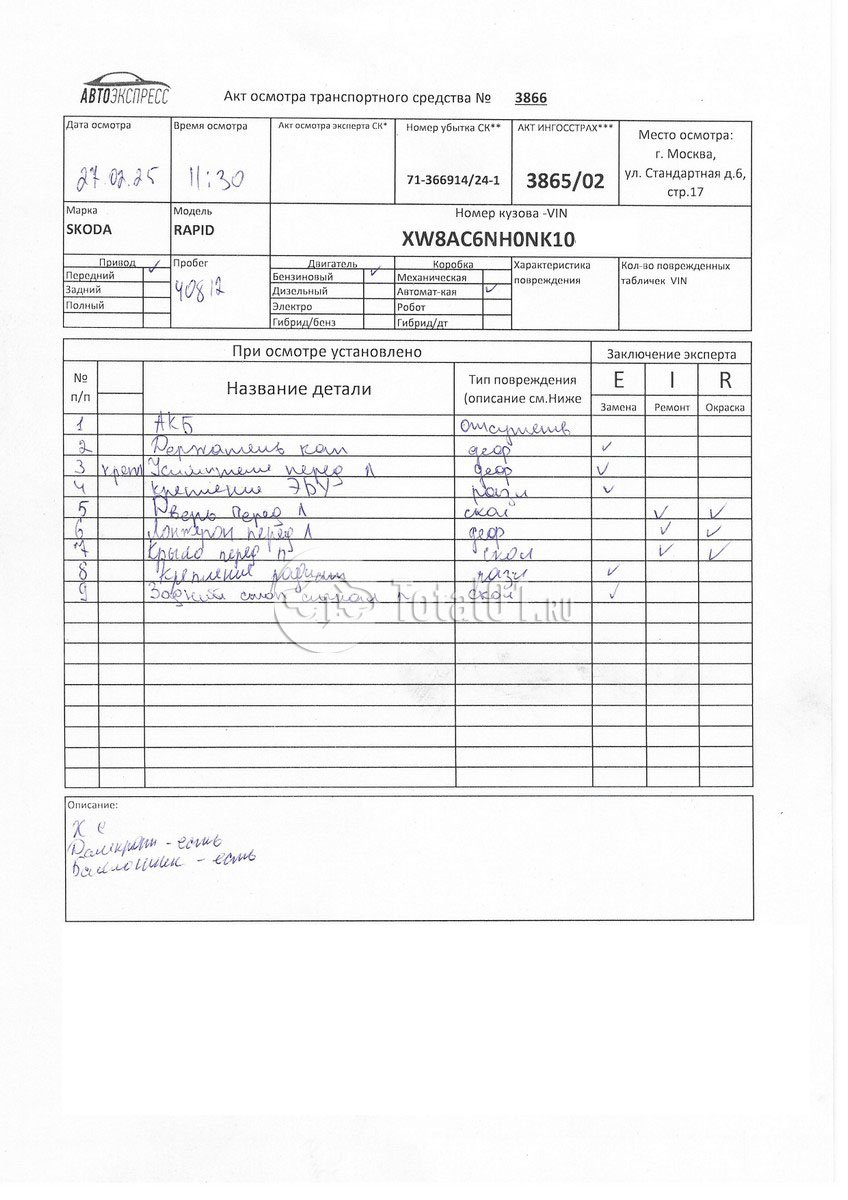 АВТОЭКСПРЕСС
Акт осмотра транспортного средства № 3866
Дата осмотра Время осмотра Акт осмотра эксперта СК* Номер убытка СК** АКТ ИНГОССТРАХ*** Место осмотра:
г. Москва,
27.02.25 11:30 71-366914/24-1 3865/02 ул. Стандартная д.6,
стр.17
Марка Модель Номер кузова -VIN
SKODA RAPID XW8AC6NH0NK10
Привод Пробег Двигатель Коробка Характеристика Кол-во поврежденных
Передний 40812 Бензиновый Механическая повреждения табличек VIN
Задний Дизельный Автомат-кая
Полный Электро Робот
Гибрид/бенз Гибрид/дт
При осмотре установлено Заключение эксперта
№ Название детали Тип повреждения E I R
п/п (описание см.Ниже Замена Ремонт Окраска
1 АКБ отсутств
2 Держатель кап деф ✓
3 креп перед Л деф ✓
4 крепление ЭБУ разл ✓
5 Дверь перед Л скол ✓ ✓
6 Лонжерон перед Л деф ✓ ✓
7 Крыло перед п скол ✓ ✓
8 крепление ✓
9 скол ✓
Total01.RU
Описание:
Домкрат - есть
Баллонник - есть